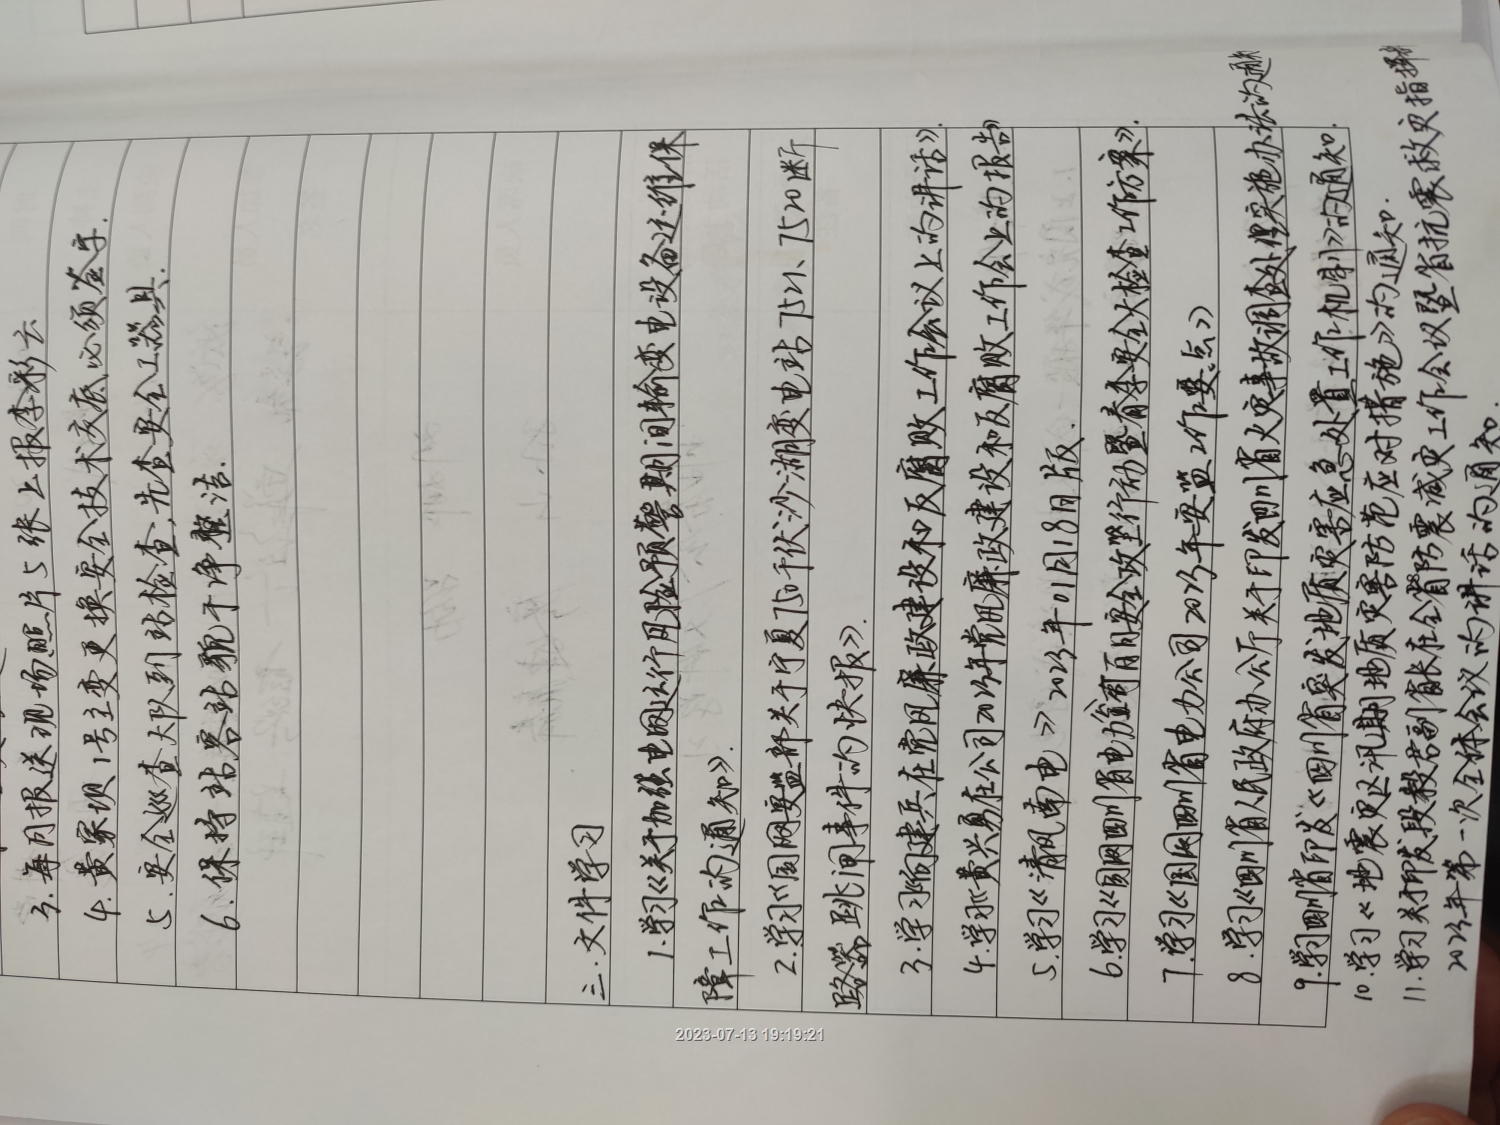 3. 每月报送现场照片5张上报李彩云
4. 黄家坝1号主变更换安全技术交底必须签字.
5. 安全巡查大队到站检查,先查安全工器具.
6. 保持站容站貌干净整洁.
三. 文件学习
1. 学习《关于加强电网运行风险预警期间输变电设备运维保
障工作的通知》.
2. 学习《国网安监部关于宁夏750千伏沙湖变电站7521、7520断
路器跳闸事件的快报》.
3. 学习《 建兵在党风廉政建设和反腐败工作会议上的讲话》.
4. 学习《黄兴勇在公司2023年党风廉政建设和反腐败工作会上的报告》
5. 学习《清风南电》2023年01月18日版.
6. 学习《国网四川省电力公司百日安全攻坚行动暨春季安全大检查工作方案》.
7. 学习《国网四川省电力公司2023年安监工作要点》
8. 学习《四川省人民政府办公厅关于印发四川省火灾事故调查处理实施办法的通
9. 学习四川省印发《四川省突发地质灾害应急处置工作机制》的通知.
10. 学习《地震灾区汛期地质灾害防范应对措施》的通知.
11. 学习关于印发段毅君副省长在全省防震减灾工作会议暨省抗震救灾指挥
2023年第一次全体会议的讲话的通知.
2023-07-13 19:19:21